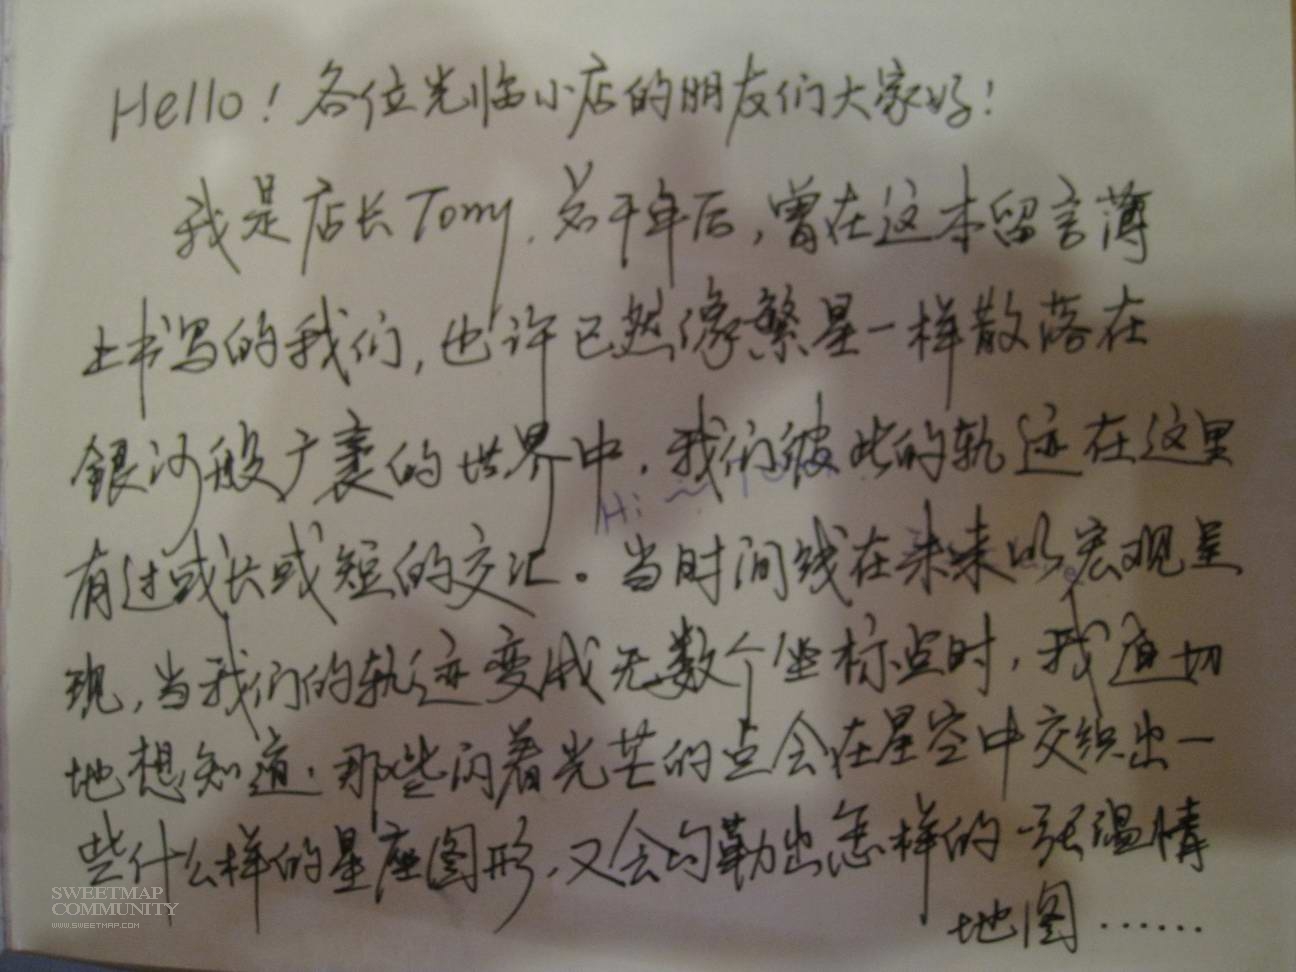 Hello！各位光临小店的朋友们大家好！
我是店长Tony，若干年后，曾在这本留言薄
上书写的我们，也许已然像繁星一样散落在
銀河般广袤的世界中，我们彼此的轨迹在这里
Hi~
有过或长或短的交汇。当时间线在未来以宏观呈
现，当我们的轨迹变成无数个坐标点时，我迫切
地想知道，那些闪着光芒的点会在星空中交织出一
些什么样的星座图形，又会勾勒出怎样的一张温情
地图……
SWEETMAP
COMMUNITY
WWW.SWEETMAP.COM